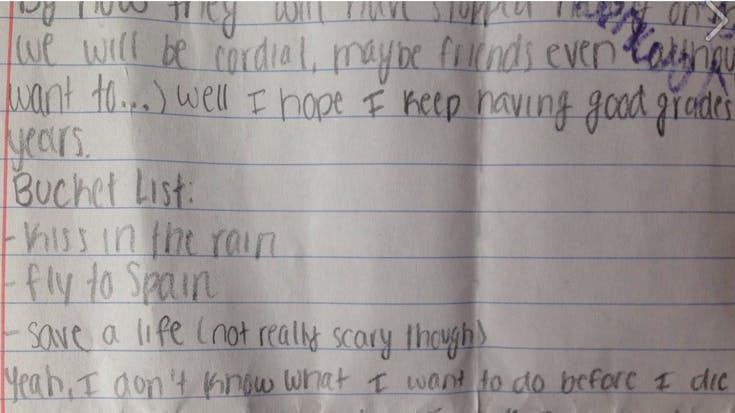 now they will have stopped
we will be cordial, maybe friends even
want to...) well I hope I keep having good grades
years.
Bucket List:
- kiss in the rain
- fly to Spain
- save a life (not really scary though)
Yeah, I don't know what I want to do before I die